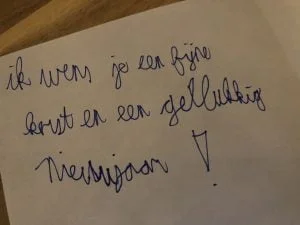 ik wens je een fijne
kerst en een gellukkig
nieuwjaar !